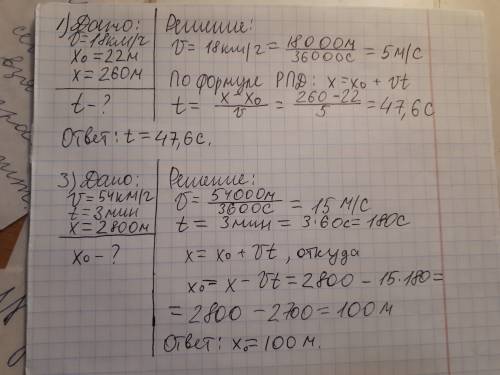 1) Дано:
v = 18км/г
x₀ = 22м
x = 260м
t - ?
Решение:
v = 18км/г = 18000м/36000с = 5м/с
По формуле РПД: x = x₀ + vt
t = x - x₀/v = 260 - 22/5 = 47,6с
Ответ: t = 47,6с.
3) Дано:
v = 54км/г
t = 3мин
x = 2800м
x₀ - ?
Решение:
v = 54000м/3600с = 15 м/с
t = 3мин = 3·60с = 180с
x = x₀ + vt, откуда
x₀ = x - vt = 2800 - 15·180 =
= 2800 - 2700 = 100м
Ответ: x₀ = 100м.